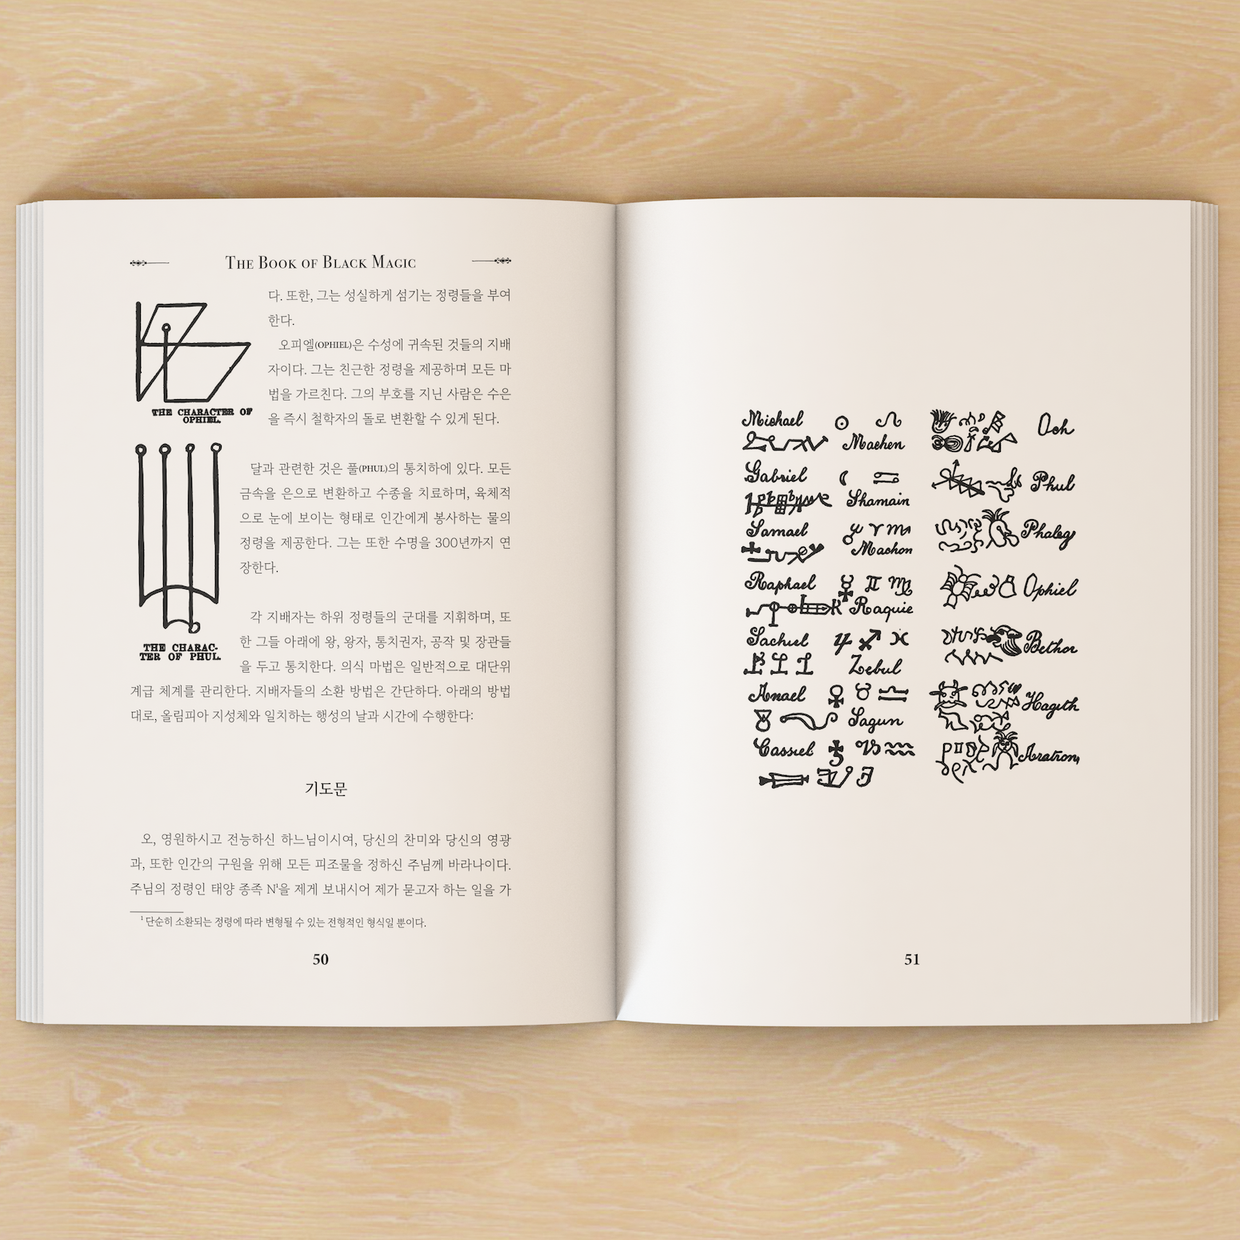 THE BOOK OF BLACK MAGIC
다. 또한, 그는 성실하게 섬기는 정령들을 부여
한다.
오피엘(OPHIEL)은 수성에 귀속된 것들의 지배
자이다. 그는 친근한 정령을 제공하며 모든 마
법을 가르친다. 그의 부호를 지닌 사람은 수은
을 즉시 철학자의 돌로 변환할 수 있게 된다.
THE CHARACTER OF
OPHIEL.
달과 관련한 것은 풀(PHUL)의 통치하에 있다. 모든
금속을 은으로 변환하고 수종을 치료하며, 육체적
으로 눈에 보이는 형태로 인간에게 봉사하는 물의
정령을 제공한다. 그는 또한 수명을 300년까지 연
장한다.
각 지배자는 하위 정령들의 군대를 지휘하며, 또
한 그들 아래에 왕, 왕자, 통치권자, 공작 및 장관들
을 두고 통치한다. 의식 마법은 일반적으로 대단위
THE CHARAC-
TER OF PHUL.
계급 체계를 관리한다. 지배자들의 소환 방법은 간단하다. 아래의 방법
대로, 올림피아 지성체와 일치하는 행성의 날과 시간에 수행한다:
기도문
오, 영원하시고 전능하신 하느님이시여, 당신의 찬미와 당신의 영광
과, 또한 인간의 구원을 위해 모든 피조물을 정하신 주님께 바라나이다.
주님의 정령인 태양 종족 N¹을 제게 보내시어 제가 묻고자 하는 일을 가
¹ 단순히 소환되는 정령에 따라 변형될 수 있는 전형적인 형식일 뿐이다.
50
Michael ☉ ♌ Och
Machen
Gabriel ☾ ♋ Phul
Shamain
Samael ♂ ♈ ♏ Phaleg
Machon
Raphael ☿ ♊ ♍ Ophiel
Raquie
Sachiel ♃ ♐ ♓ Bethor
Zebul
Anael ♀ ♉ ♎ Hagith
Sagun
Cassiel ♄ ♑ ♒ Aratron,
51